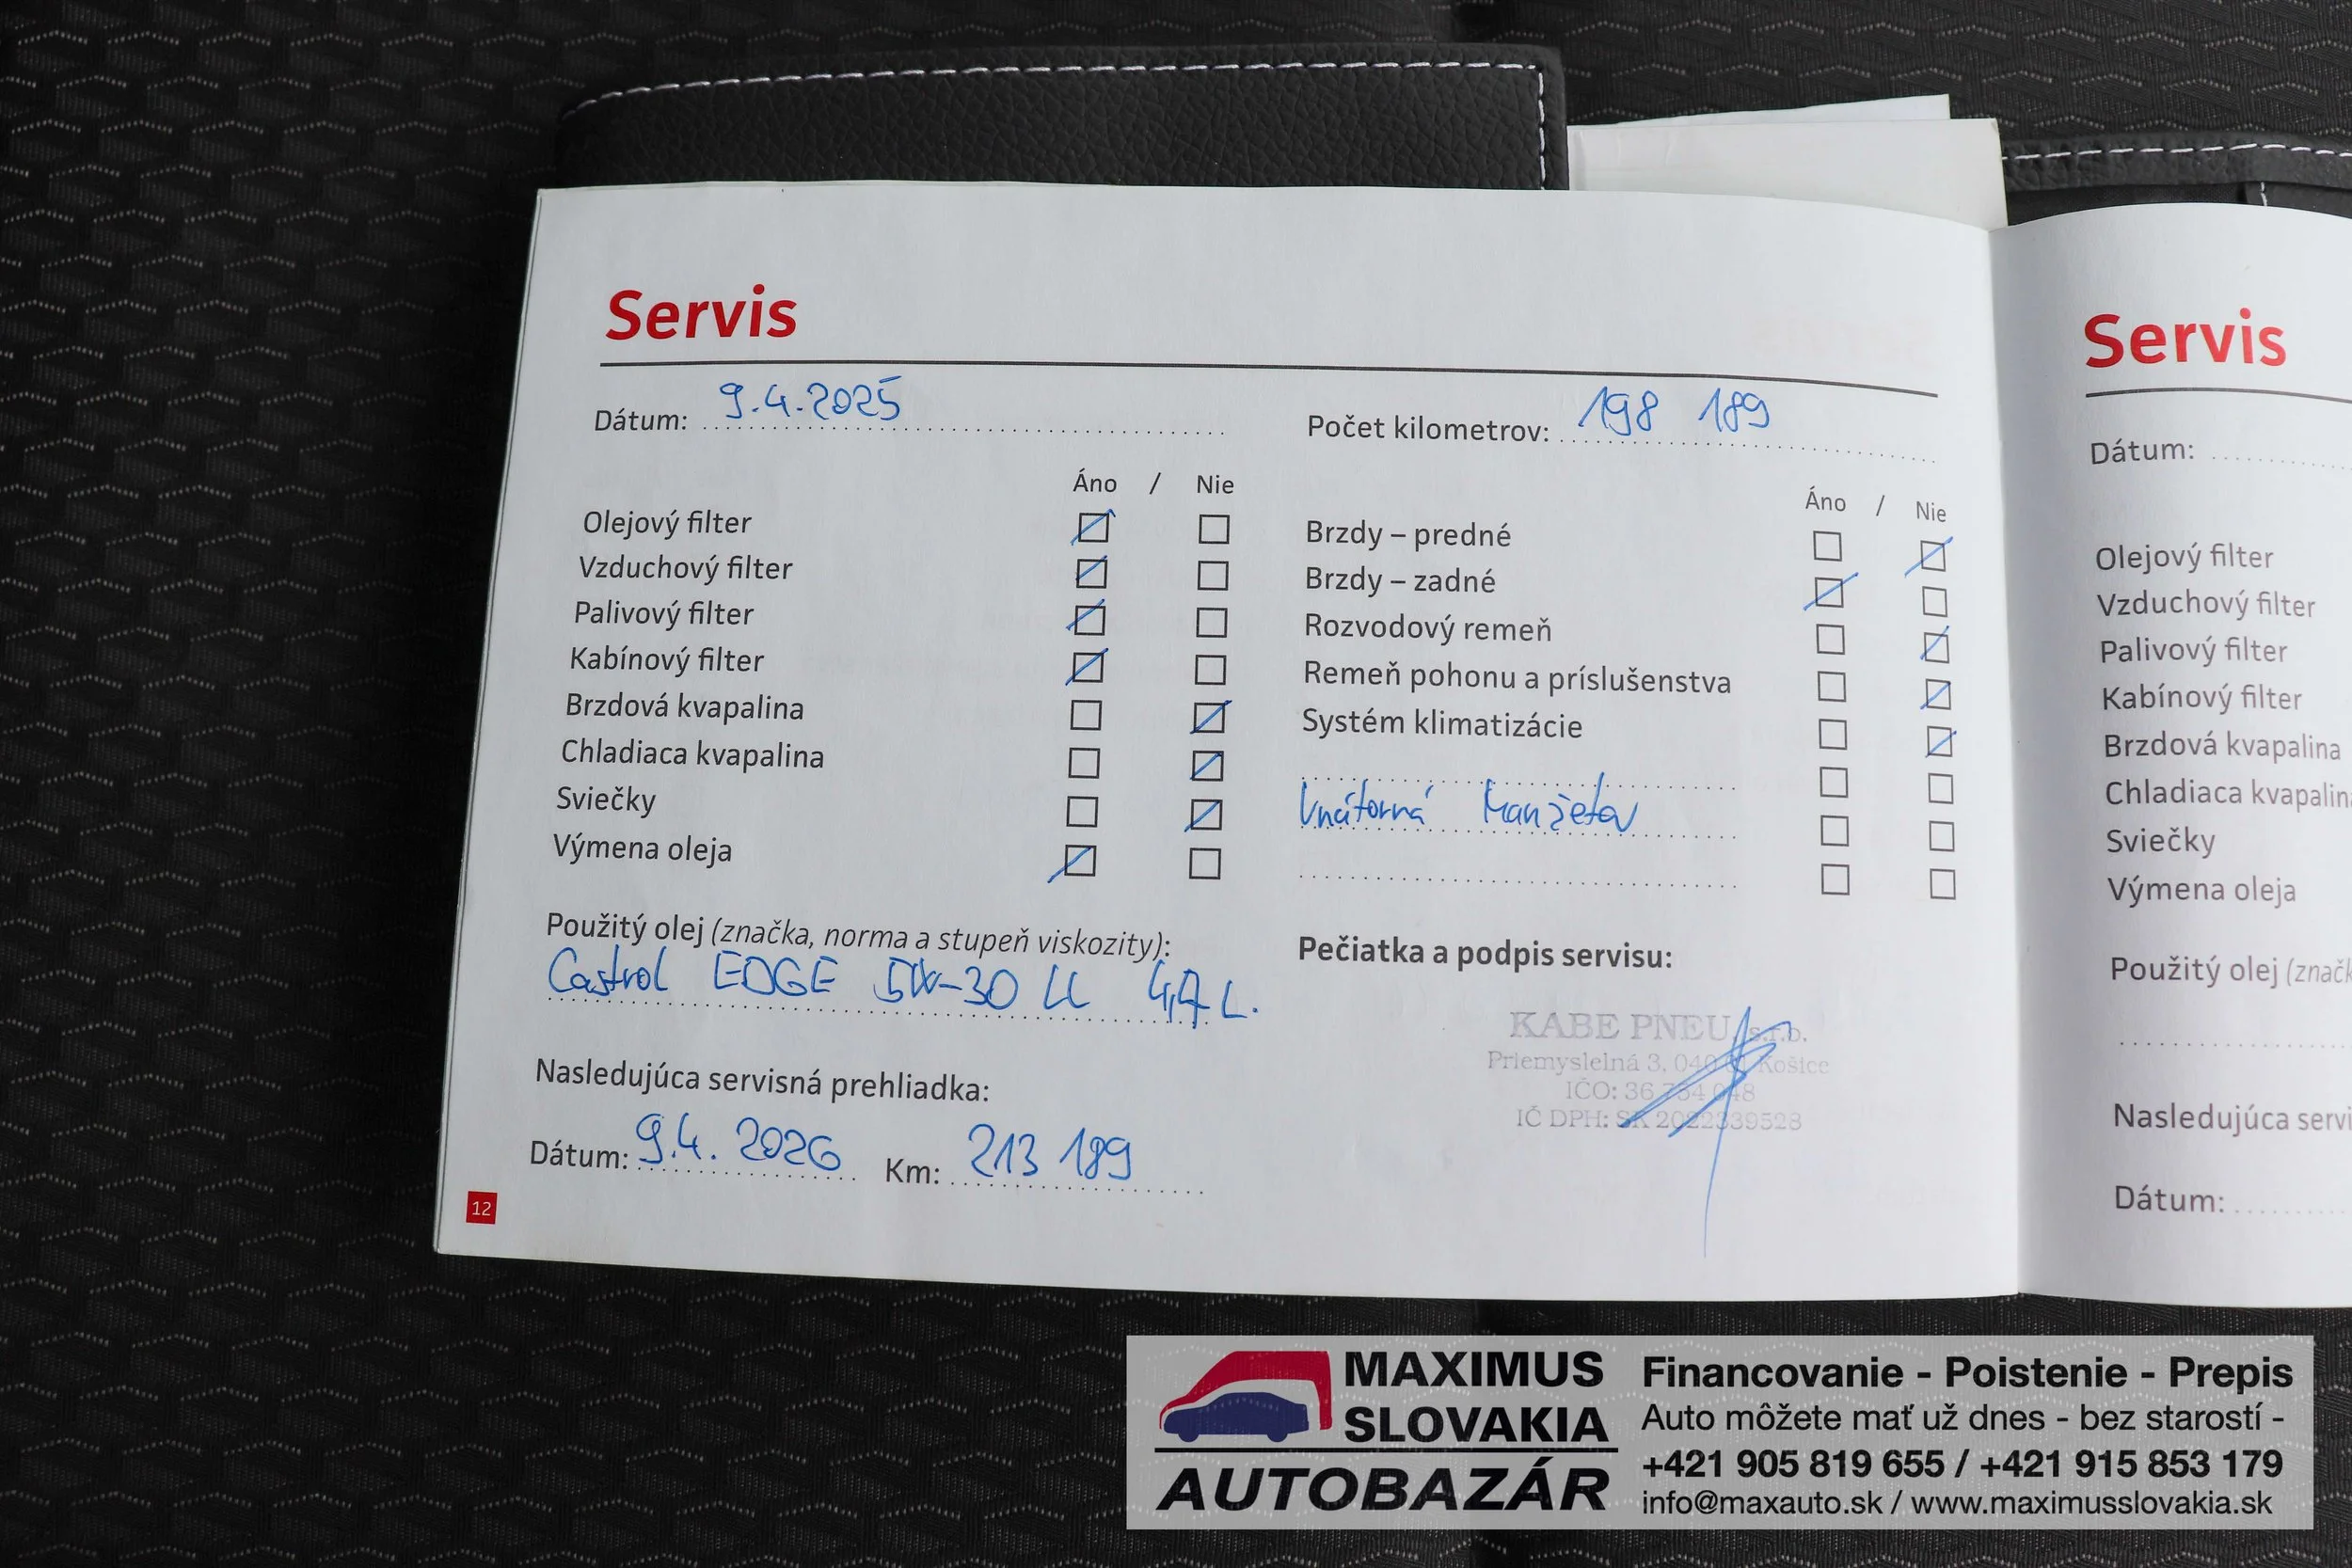 Servis
Dátum: 9.4.2025
Počet kilometrov: 198 189
Áno / Nie
Olejový filter
Vzduchový filter
Palivový filter
Kabínový filter
Brzdová kvapalina
Chladiaca kvapalina
Sviečky
Výmena oleja
Áno / Nie
Brzdy – predné
Brzdy – zadné
Rozvodový remeň
Remeň pohonu a príslušenstva
Systém klimatizácie
Vnútorná Manžeta
Použitý olej (značka, norma a stupeň viskozity):
Castrol EDGE 5W-30 LL 4,7 L.
Nasledujúca servisná prehliadka:
Dátum: 9.4. 2026 Km: 213 189
Pečiatka a podpis servisu:
KABE PNEU, s.r.o.
Priemyslelná 3, Košice
IČO:
IČ DPH: SK 2022339528
12
Servis
Dátum:
Olejový filter
Vzduchový filter
Palivový filter
Kabínový filter
Brzdová kvapalina
Chladiaca kvapalin
Sviečky
Výmena oleja
Použitý olej (značk
Nasledujúca servi
Dátum:
MAXIMUS
SLOVAKIA
AUTOBAZÁR
Financovanie - Poistenie - Prepis
Auto môžete mať už dnes - bez starostí -
+421 905 819 655 / +421 915 853 179
info@maxauto.sk / www.maximusslovakia.sk